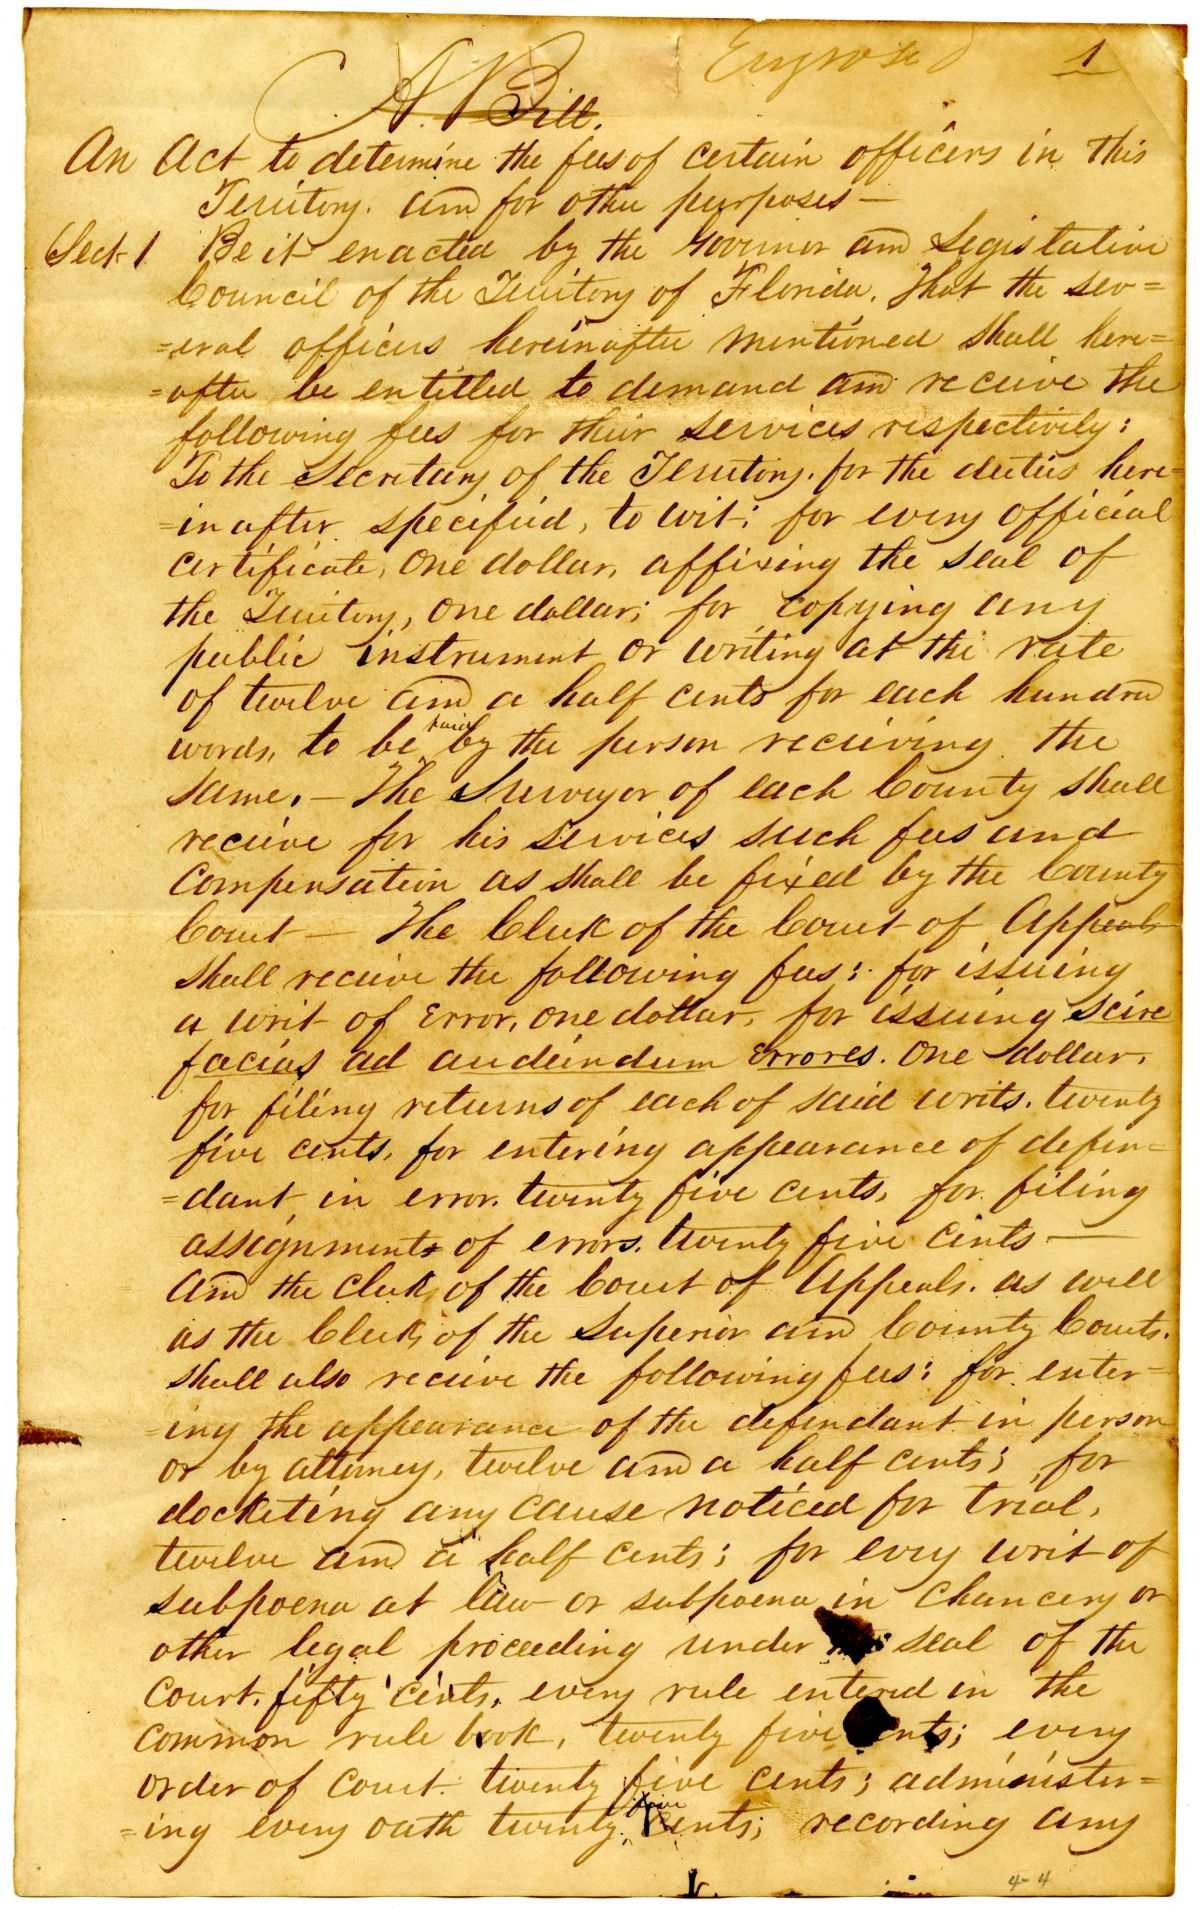 Engrossed 1
A Bill.
An Act to determine the fees of certain officers in this
Territory. and for other purposes —
Sect 1 Be it enacted by the Governor and Legislative
Council of the Territory of Florida. That the sev=
=eral officers hereinafter mentioned shall here=
=after be entitled to demand and receive the
following fees for their services respectively:
To the Secretary of the Territory. for the duties here=
=inafter specified, to wit: for every official
certificate, One dollar, affixing the seal of
the Territory, one dollar; for copying any
public instrument or writing at the rate
of twelve and a half cents for each hundred
words, to be paid by the person recieving the
same. — The Surveyor of each County shall
recieve for his services such fees and
Compensation as shall be fixed by the County
Court — The Clerk of the Court of Appeals
shall recieve the following fees: for issuing
a writ of Error, one dollar, for issuing scire
facias ad audeindum Errores. One dollar,
for filing returns of each of said writs. twenty
five cents, for entering appearance of defen=
=dant in error. twenty five cents, for filing
assignments of errors. twenty five cents —
And the Clerk of the Court of Appeals. as well
as the Clerks of the Superior and County Courts.
shall also recieve the following fees: for enter=
=ing the appearance of the defendant in person
or by attorney, twelve and a half cents; for
docketing any cause noticed for trial,
twelve and a half cents; for every writ of
subpoena at law or subpoena in Chancery or
other legal proceeding under seal of the
Court. fifty cents, every rule entered in the
common rule book, twenty five cents; every
order of Court twenty five cents; administer=
=ing every oath twenty five cents; recording any
4-4